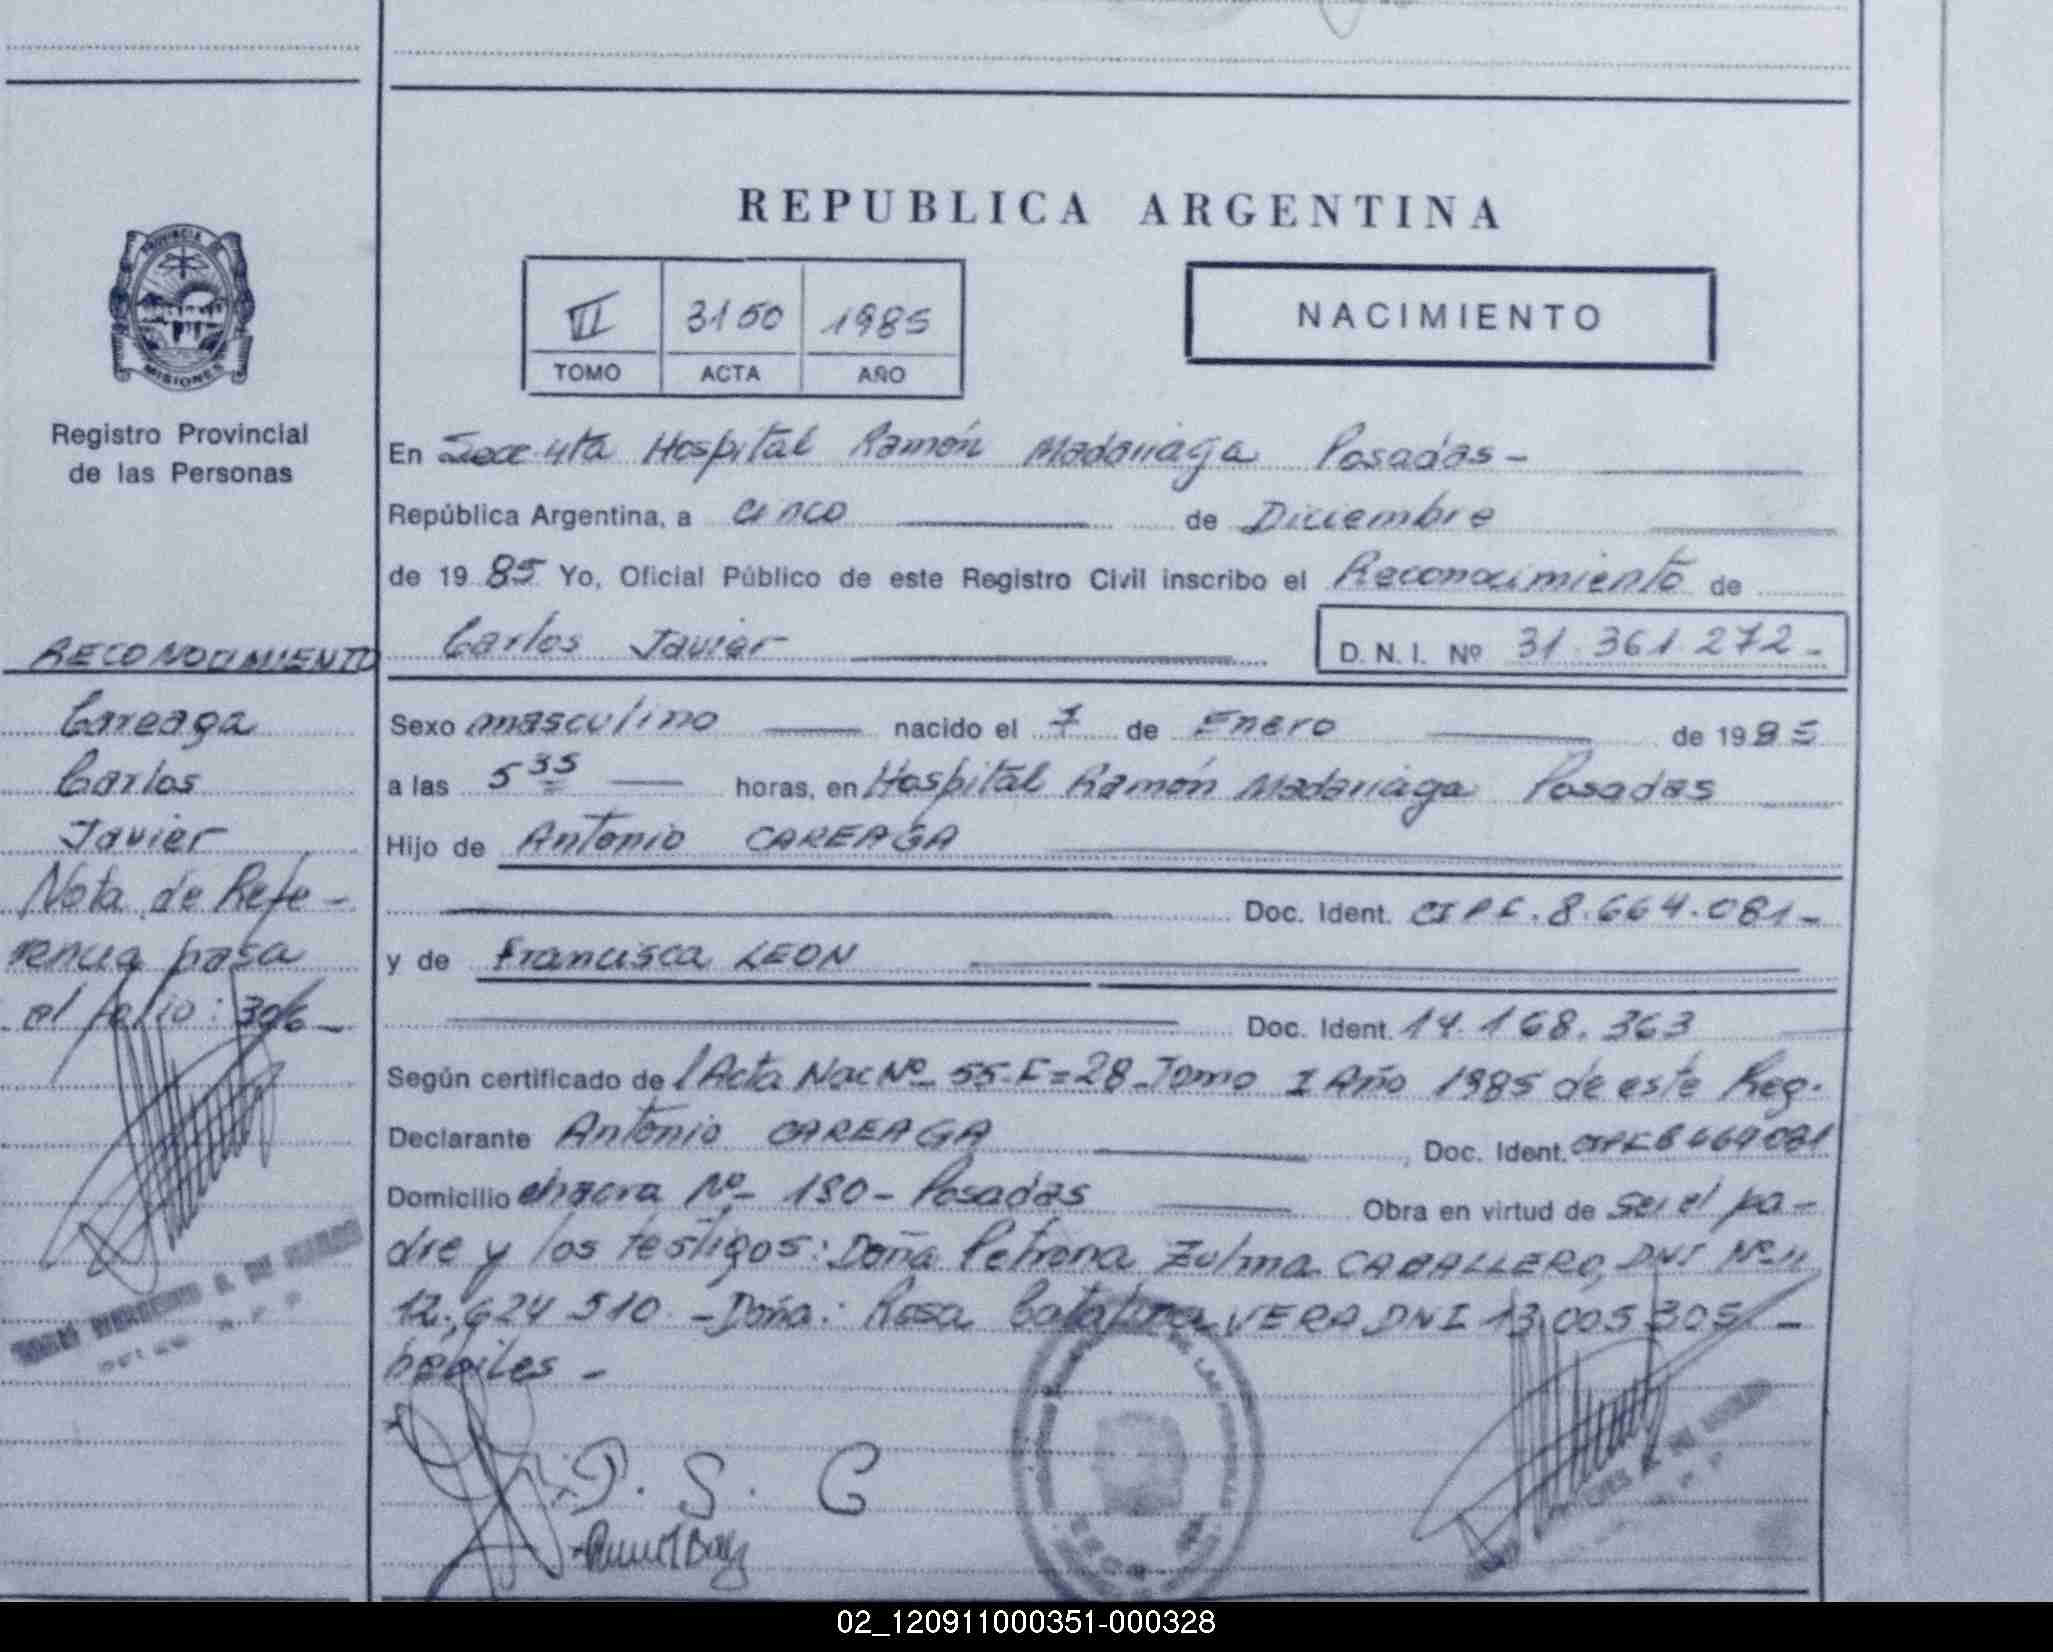 REPUBLICA ARGENTINA
VI 3150 1985
TOMO ACTA AÑO
NACIMIENTO
PROVINCIA DE
MISIONES
Registro Provincial
de las Personas
RECONOCIMIENTO
Careaga
Carlos
Javier
Nota de Refe-
rencia pasa
al folio: 396-
En Secc 4ta Hospital Ramón Madariaga Posadas-
República Argentina, a cinco de Diciembre
de 1985 Yo, Oficial Público de este Registro Civil inscribo el Reconocimiento de
Carlos Javier D. N. I. Nº 31.361.272-
Sexo masculino nacido el 7 de Enero de 1985
a las 5 35 horas, en Hospital Ramón Madariaga Posadas
Hijo de Antonio CAREAGA
Doc. Ident. CIPF. 8.664.081-
y de Francisca LEON
Doc. Ident. 14.168.363
Según certificado de l Acta Nac Nº 55-F=28-Tomo I Año 1985 de este Reg.
Declarante Antonio CAREAGA, Doc. Ident. CIPF 8 664 081
Domicilio chacra Nº 190-Posadas Obra en virtud de ser el pa-
dre y los testigos: Doña Petrona Zulma CABALLERO, DNI Nº
12.624 510 -Doña: Rosa Catalina VERA DNI 13 005 305 -
hábiles -
P. S. C
02_120911000351-000328